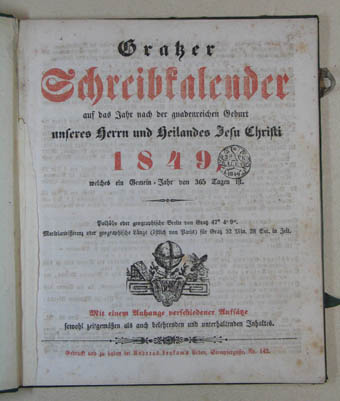 Gratzer
Schreibkalender
auf das Jahr nach der gnadenreichen Geburt
unseres Herrn und Heilandes Jesu Christi
1849
welches ein Gemein-Jahr von 365 Tagen ist.
Polhöhe oder geographische Breite von Gratz 47° 4' 9".
Meridiandifferenz oder geographische Länge (östlich von Paris) für Gratz 52 Min. 28 Sec. in Zeit.
Mit einem Anhange verschiedener Aufsätze
sowohl zeitgemäßen als auch belehrenden und unterhaltenden Inhaltes.
Gedruckt und zu haben bei Andreas Leykam's Erben, Stempfergasse, Nr. 142.